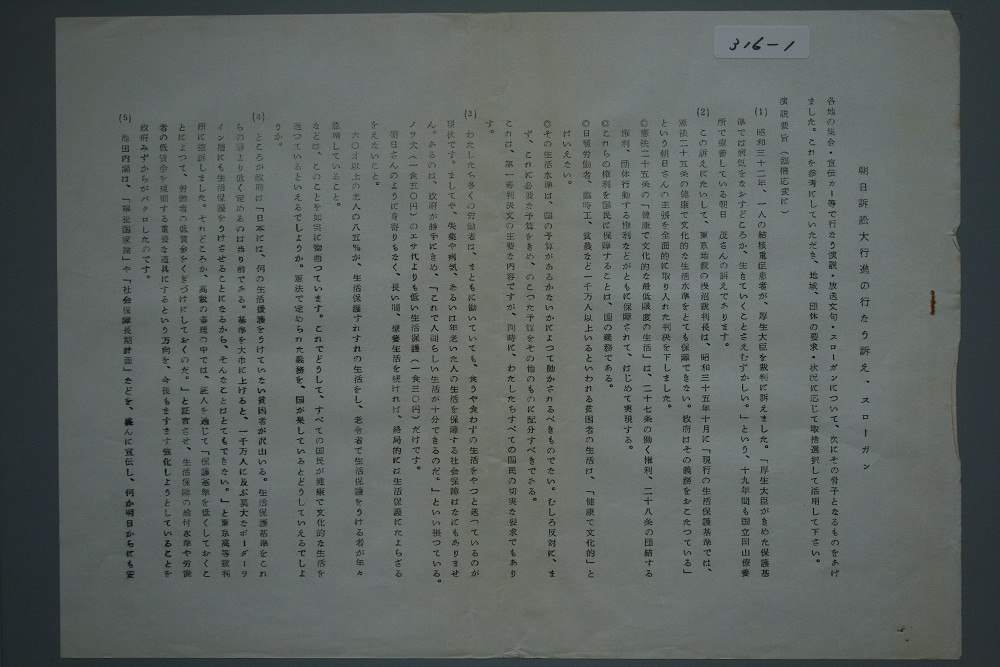 316-1
朝日訴訟大行進の行なう訴え、スローガン
各地の集会・宣伝カー等で行なう演説・放送文句・スローガンについて、次にその骨子となるものをあげ
ました。これを参考にしていただき、地域、団体の要求・状況に応じて取捨選択して活用して下さい。
演説要旨（臨機応変に）
(1) 昭和三十二年、一人の結核重症患者が、厚生大臣を裁判に訴えました。「厚生大臣がきめた保護基
準では病気をなおすどころか、生きていくことさえむずかしい。」という、十九年間も国立岡山療養
所で療養している朝日 茂さんの訴えであります。
(2) この訴えにたいして、東京地裁の浅沼裁判長は、昭和三十五年十月に「現行の生活保護基準では、
憲法二十五条の健康で文化的な生活水準をとても保障できない。政府はその義務をおこたつている」
という朝日さんの主張を全面的に取り入れた判決を下しました。
◎憲法二十五条の「健康で文化的な最低限度の生活」は、二十七条の働く権利、二十八条の団結する
権利、団体行動する権利などがともに保障されて、はじめて実現する。
◎これらの権利を国民に保障することは、国の義務である。
◎日雇労働者、臨時工、貧農など一千万人以上もいるといわれる貧困者の生活は、「健康で文化的」と
はいえない。
◎その生活水準は、国の予算があるかないかによつて動かされるべきものでない。むしろ反対に、ま
ず、これに必要な予算をきめ、のこつた予算をその他のものに配分すべきである。
これは、第一審判決文の主要な内容ですが、同時に、わたしたちすべての国民の切実な要求でもあり
す。
(3) わたしたち多くの労働者は、まともに働いていても、食うや食わずの生活をやつと送つているのが
現状です。ましてや、失業や病気、あるいは年老いた人の生活を保障する社会保障はなにもありませ
ん。あるのは、政府が勝手にきめ、「これで人間らしい生活が十分できるのだ。」といい張つている。
ノサ犬（一食五〇円）のエサ代よりも低い生活保護（一食三〇円）だけです。
朝日さんのように身寄りもなく、長い間、療養生活を続ければ、終局的には生活保護にたよらざる
をえたいこと。
六〇才以上の老人の八五％が、生活保護すれすれの生活をし、老令者で生活保護をうける者が年々
急増していること。
などは、このことを如実に物語つています。これでどうして、すべての国民が健康で文化的な生活を
送つているといえるでしようか。憲法で定められた義務を、国が果しているとどうしていえるでしよ
うか。
(4) ところが政府は「日本には、何の生活援護をうけていない貧困者が沢山いる。生活保護基準をこれ
らの層より低く定めるのは当り前である。基準を大巾に上げると、一千万人に及ぶ莫大なボーダーラ
イン層にも生活保護をうけさせることになるから、そんなことはとてもできない。」と東京高等裁判
所に控訴しました。それどころか、高裁の審理の中では、証人を通じて「保護基準を低くしておくこ
とによつて、労働者の低賃金をくぎづけにしておくのだ。」と証言させ、生活保障の給付水準や労働
者の低賃金を規制する重要な道具にするという方向を、今後もますます強化しようとしていることを
政府みずからがバクロしたのです。
(5) 池田内閣は、「福祉国家論」や「社会保障長期計画」などを、盛んに宣伝し、何か明日からにも安